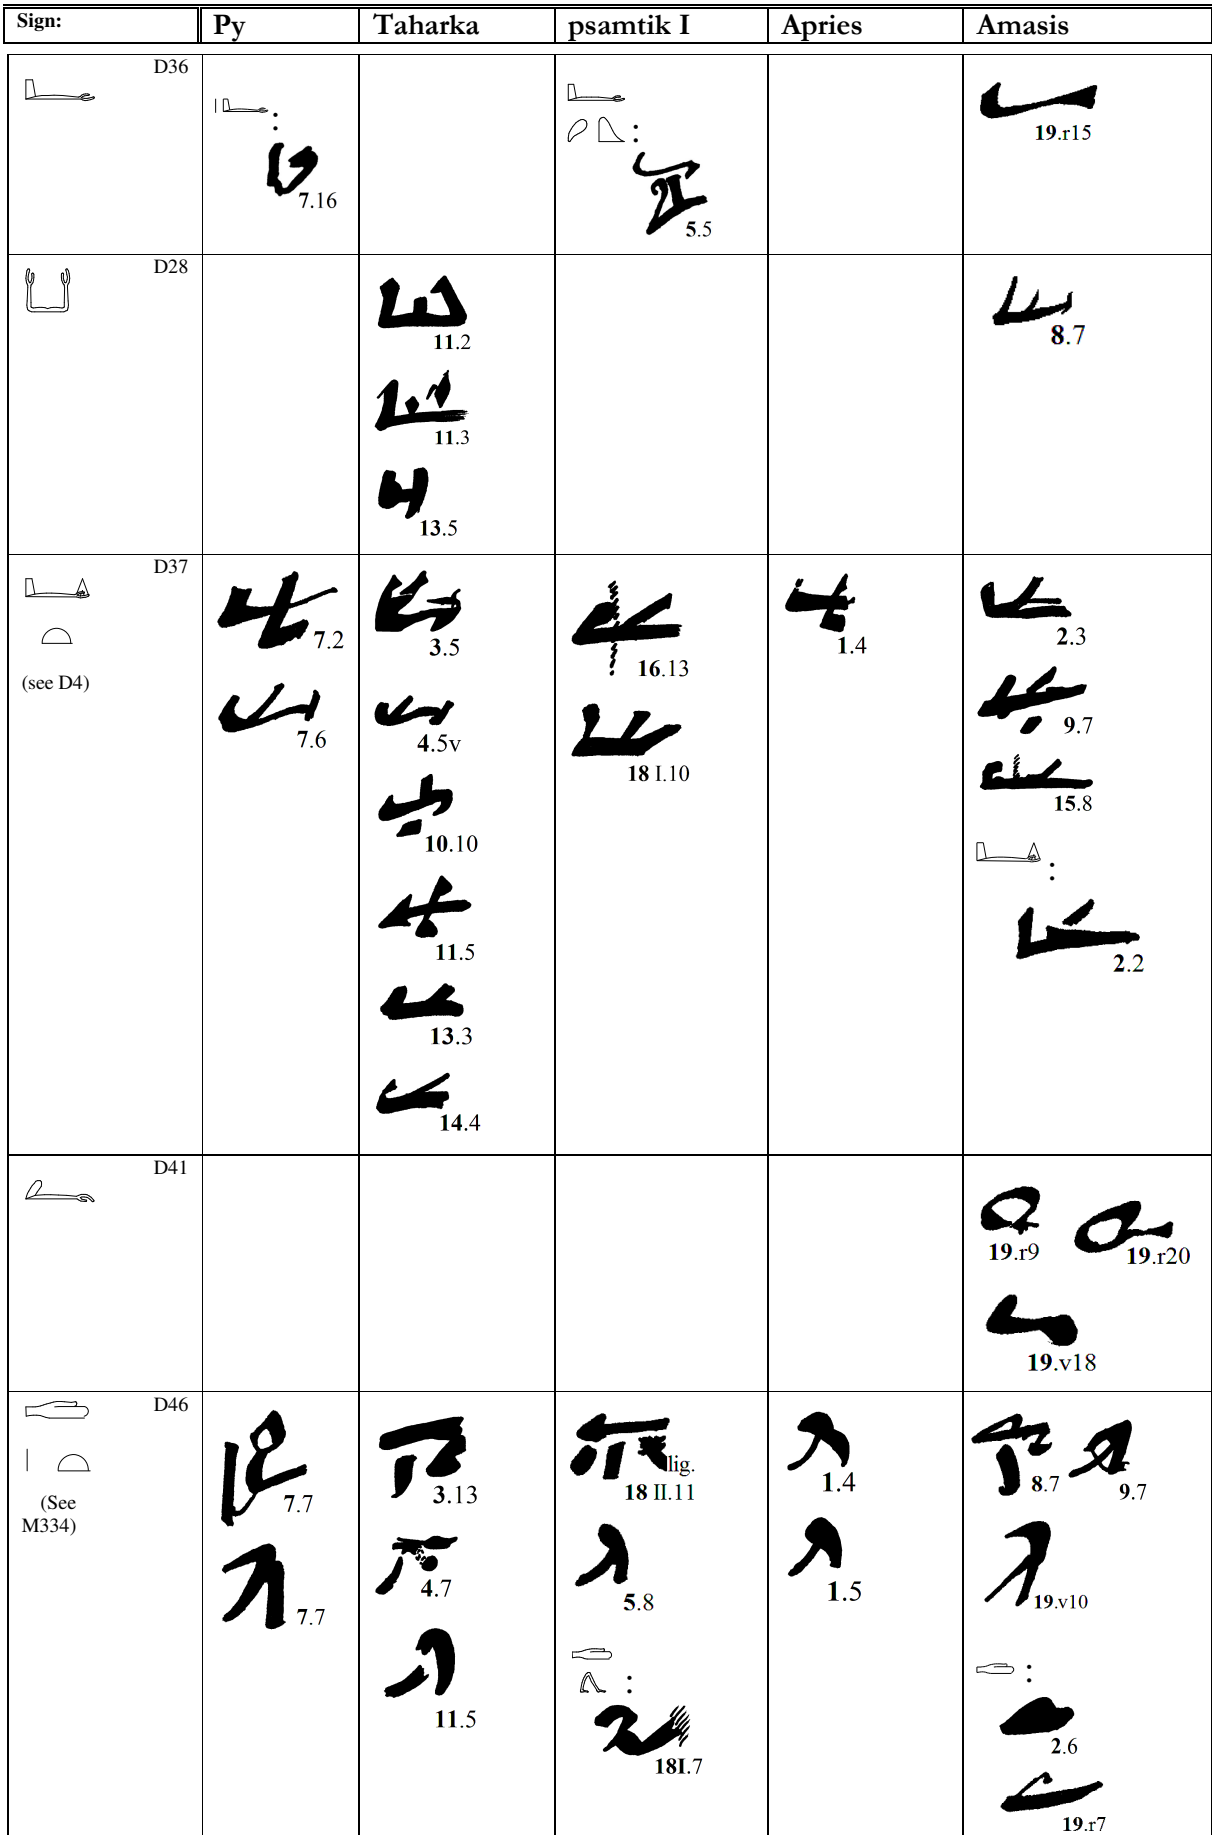 Sign: Py Taharka psamtik I Apries Amasis
D36
:
7.16
:
5.5
19.r15
D28
11.2
11.3
13.5
8.7
D37
(see D4)
7.2
7.6
3.5
4.5v
10.10
11.5
13.3
14.4
16.13
18 I.10
1.4
2.3
9.7
15.8
:
2.2
D41
19.r9 19.r20
19.v18
D46
(See
M334)
7.7
7.7
3.13
4.7
11.5
lig.
18 II.11
5.8
:
18I.7
1.4
1.5
8.7 9.7
19.v10
:
2.6
19.r7